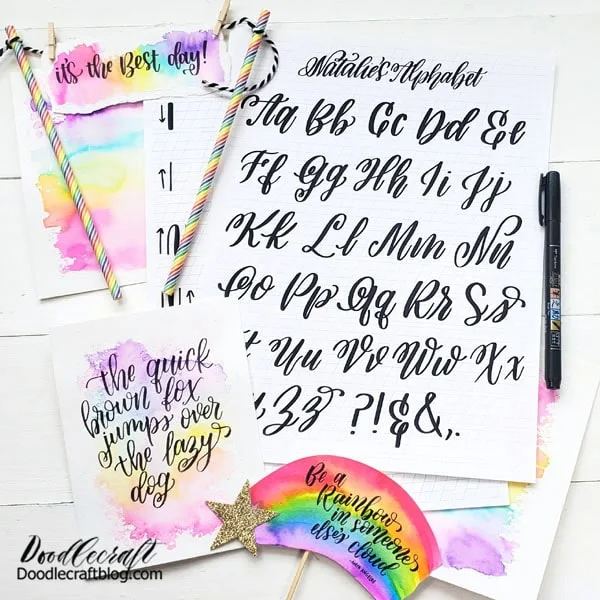 it's the Best day!
Natalie's Alphabet
Aa Bb Cc Dd Ee
Ff Gg Hh Ii Jj
Kk Ll Mm Nn
Oo Pp Qq Rr Ss
t Uu Vv Ww Xx
Zz ?!&,.
the quick
brown fox
jumps over
the lazy
dog
Be a
Rainbow
in someone
else's cloud
-MAYA ANGELOU
Doodlecraft
Doodlecraftblog.com